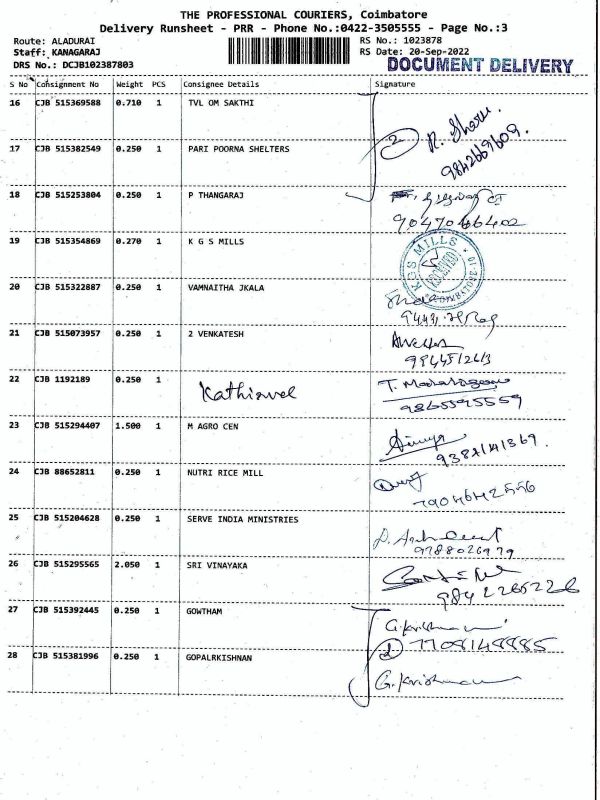 THE PROFESSIONAL COURIERS, Coimbatore
Delivery Runsheet - PRR - Phone No.:0422-3505555 - Page No.:3
Route: ALADURAI RS No.: 1023878
Staff: KANAGARAJ RS Date: 20-Sep-2022
DRS No.: DCJB102387803 DOCUMENT DELIVERY
S No Consignment No Weight PCS Consignee Details Signature
16 CJB 515369588 0.710 1 TVL OM SAKTHI
2
9842669609.
17 CJB 515382549 0.250 1 PARI POORNA SHELTERS
18 CJB 515253804 0.250 1 P THANGARAJ
9047066402
19 CJB 515354869 0.270 1 K G S MILLS
KGS MILLS
RECEIVED
20 CJB 515322887 0.250 1 VAMNAITHA JKALA
21 CJB 515073957 0.250 1 2 VENKATESH
22 CJB 1192189 0.250 1 Kathirvel
9865595559
23 CJB 515294407 1.500 1 M AGRO CEN
24 CJB 88652811 0.250 1 NUTRI RICE MILL
7904642556
25 CJB 515204628 0.250 1 SERVE INDIA MINISTRIES
9788026979
26 CJB 515295565 2.050 1 SRI VINAYAKA
9842265226
27 CJB 515392445 0.250 1 GOWTHAM
2 7708148885
28 CJB 515381996 0.250 1 GOPALRKISHNAN